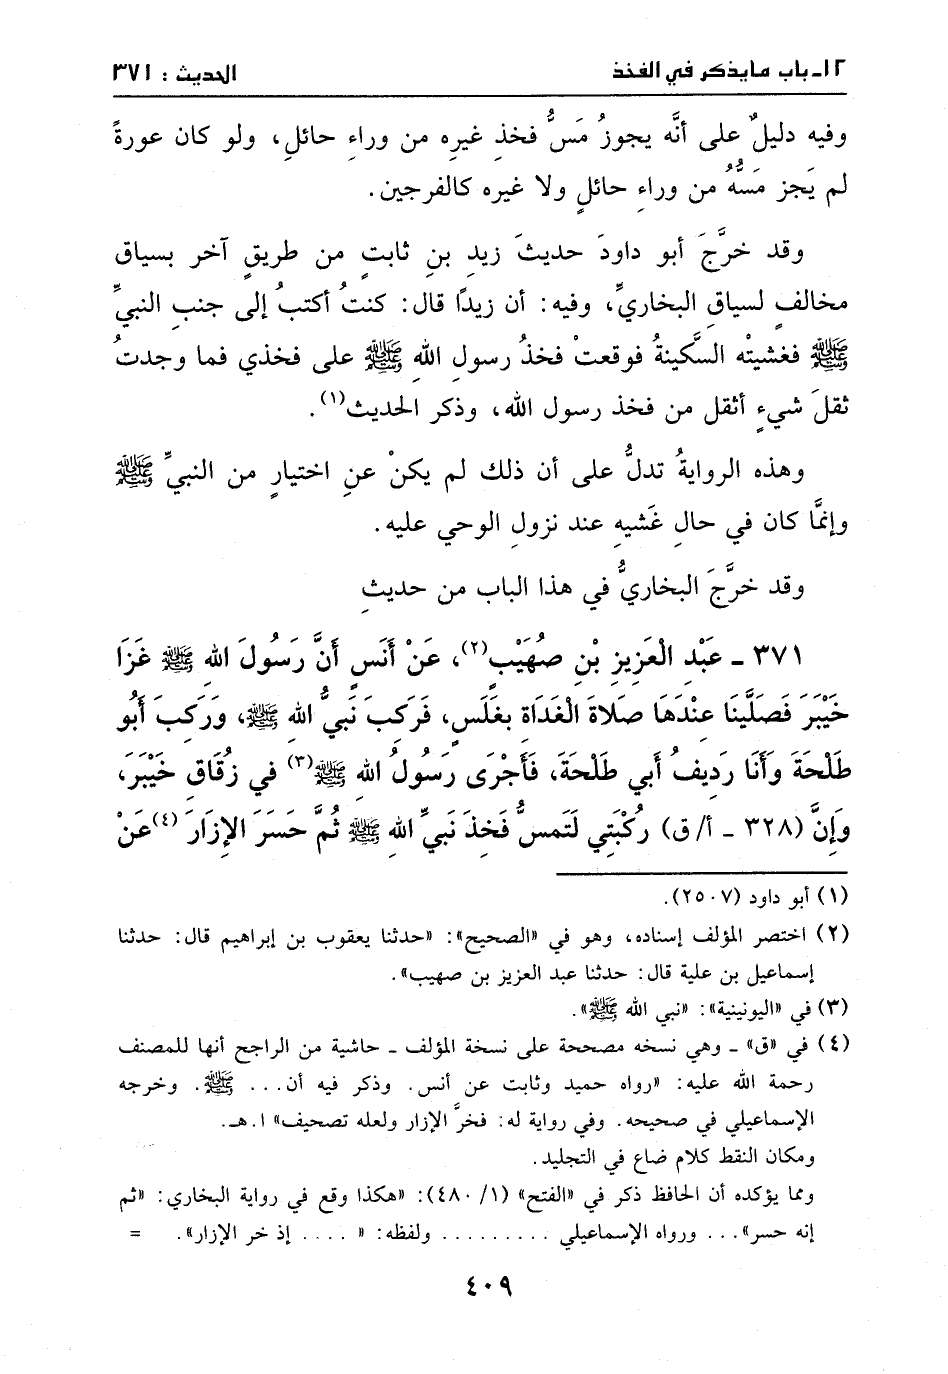 ١٢ـ باب مايذكر في الفخذ الحديث : ٣٧١
وفيه دليلٌ على أنَّه يجوزُ مَسُّ فخذِ غيرِه من وراءِ حائلٍ، ولو كان عورةً
لم يَجز مَسُّهُ من وراءِ حائلٍ ولا غيره كالفرجين.
وقد خرَّجَ أبو داودَ حديثَ زيدِ بنِ ثابتٍ من طريقٍ آخر بسياق
مخالفٍ لسياقِ البخاريِّ، وفيه: أن زيدًا قال: كنتُ أكتبُ إلى جنبِ النبيِّ
ﷺ فغشيتْه السَّكينةُ فوقعتْ فخذُ رسولِ اللهِ ﷺ على فخذي فما وجدتُ
ثقلَ شيءٍ أثقل من فخذ رسول الله، وذكر الحديث(١).
وهذه الروايةُ تدلُّ على أن ذلك لم يكنْ عنِ اختيارٍ من النبيِّ ﷺ
وإنمَّا كان في حالِ غَشيهِ عند نزولِ الوحي عليه.
وقد خرَّجَ البخاريُّ في هذا الباب من حديثِ
٣٧١ ـ عَبْدِ الْعَزِيزِ بْنِ صُهَيْبٍ(٢)، عَنْ أَنَسٍ أَنَّ رَسُولَ اللهِ ﷺ غَزَا
خَيْبَرَ فَصَلَّينَا عِنْدَهَا صَلاَةَ الْغَدَاةِ بِغَلَسٍ، فَرَكِبَ نَبيُّ اللهِ ﷺ، وَرَكِبَ أَبُو
طَلْحَةَ وَأَنَا رَدِيفُ أَبِي طَلْحَةَ، فَأَجْرَى رَسُولُ اللهِ ﷺ(٣) في زُقَاقِ خَيْبَرَ،
وَإِنَّ (٣٢٨ ـ أ/ ق) رُكْبَتِي لَتَمسُّ فَخِذَ نَبيِّ اللهِ ﷺ ثُمَّ حَسَرَ الإِزَارَ (٤)عَنْ
(١) أبو داود (٢٥٠٧).
(٢) اختصر المؤلف إسناده، وهو في «الصحيح»: «حدثنا يعقوب بن إبراهيم قال: حدثنا
إسماعيل بن علية قال: حدثنا عبد العزيز بن صهيب».
(٣) في «اليونينية»: «نبي الله ﷺ».
(٤) في «ق» ـ وهي نسخه مصححة على نسخة المؤلف ـ حاشية من الراجح أنها للمصنف
رحمة الله عليه: «رواه حميد وثابت عن أنس. وذكر فيه أن... ﷺ. وخرجه
الإسماعيلي في صحيحه. وفي رواية له: فخرَّ الإزار ولعله تصحيف» ا.هـ.
ومكان النقط كلام ضاع في التجليد.
ومما يؤكده أن الحافظ ذكر في «الفتح» (١/ ٤٨٠): «هكذا وقع في رواية البخاري: «ثم
إنه حسر»... ورواه الإسماعيلي ......... ولفظه: « .... إذ خر الإزار». =
٤٠٩